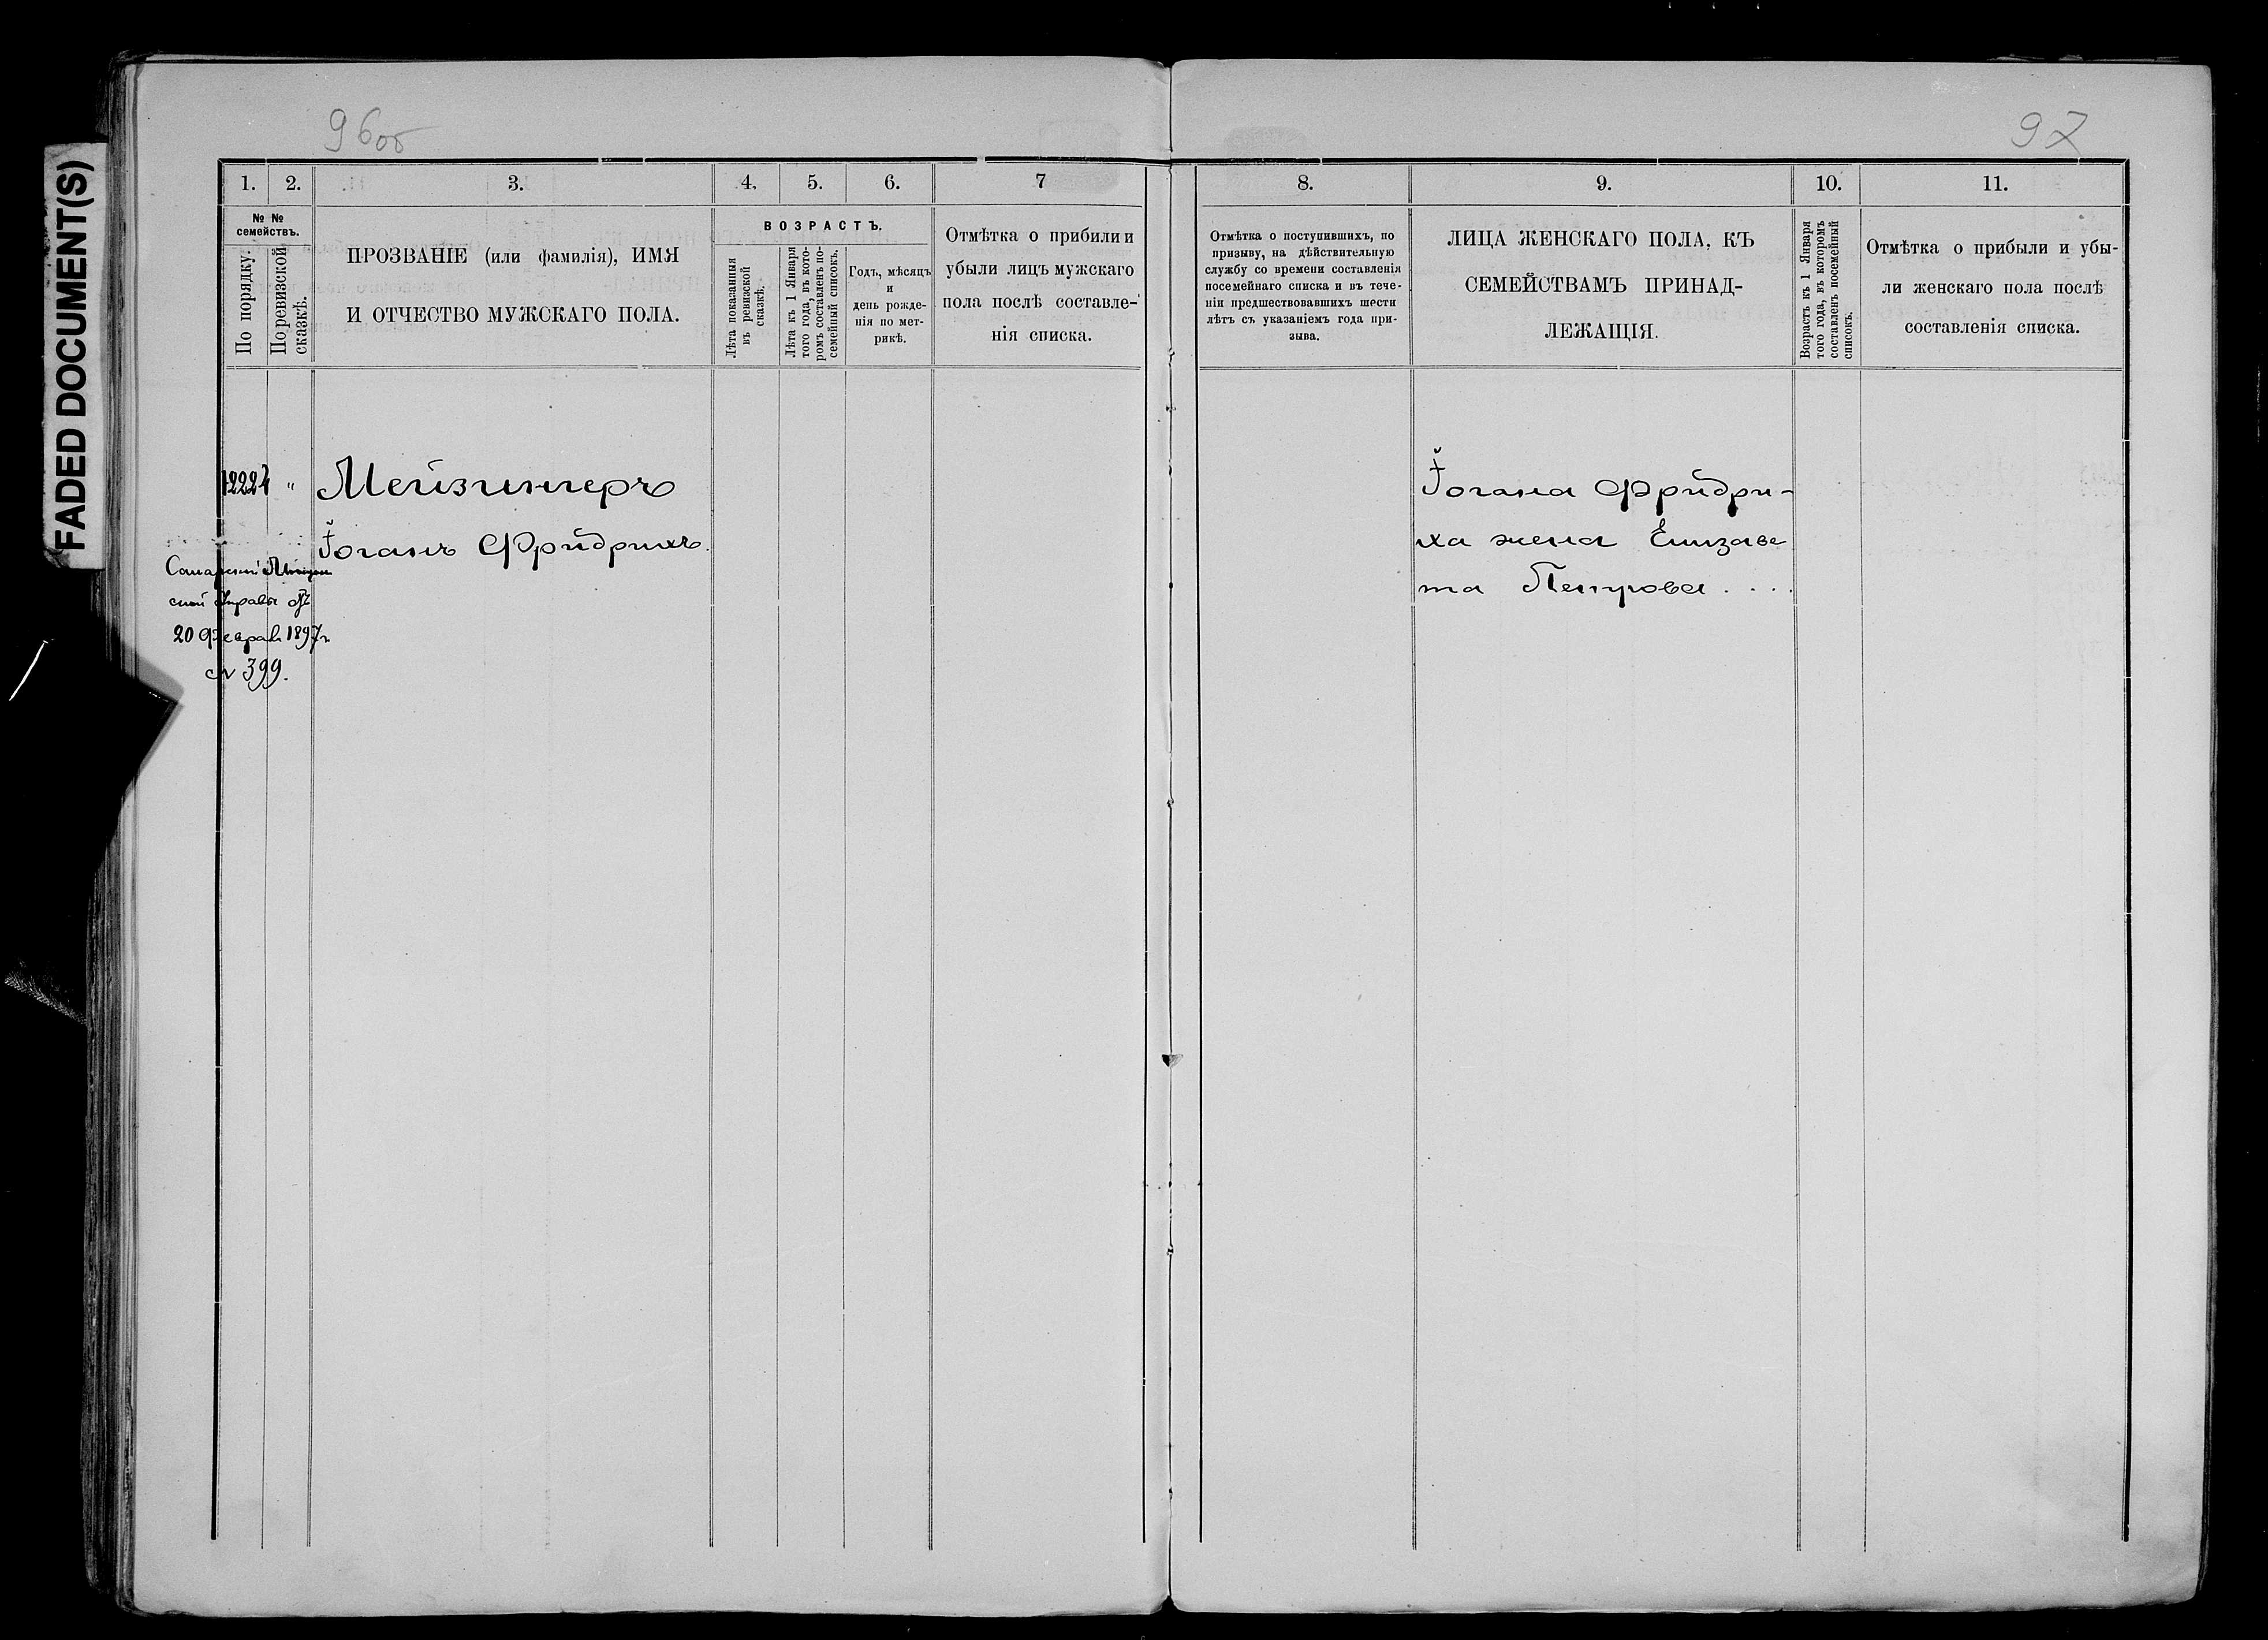 FADED DOCUMENT(S)
96об
97
1.
2.
3.
4.
5.
6.
7
№ №
семействъ.
По порядку.
По ревизской
сказкѣ.
ПРОЗВАНІЕ (или фамилія), ИМЯ
И ОТЧЕСТВО МУЖСКАГО ПОЛА.
ВОЗРАСТЪ.
Лѣта показанныя
въ ревизской
сказкѣ.
Лѣта къ 1 Января
того года, въ кото-
ромъ составленъ по-
семейный списокъ.
Годъ, мѣсяцъ
и
день рожде-
нія по мет-
рикѣ.
Отмѣтка о прибили и
убыли лицъ мужскаго
пола послѣ составле-
нія списка.
8.
9.
10.
11.
Отмѣтка о поступившихъ, по
призыву, на дѣйствительную
службу со времени составленія
посемейнаго списка и въ тече-
ніи предшествовавшихъ шести
лѣтъ съ указаніемъ года при-
зыва.
ЛИЦА ЖЕНСКАГО ПОЛА, КЪ
СЕМЕЙСТВАМЪ ПРИНАД-
ЛЕЖАЩІЯ.
Возрастъ къ 1 Января
того года, въ которомъ
составленъ посемейный
списокъ.
Отмѣтка о прибыли и убы-
ли женскаго пола послѣ
составленія списка.
" Мейзингеръ
Іоганъ Фридрихъ.
20 Феврал 1897г.
№ 399.
Іогана Фридри-
ха жена Елизаве
та Петрова . . . .